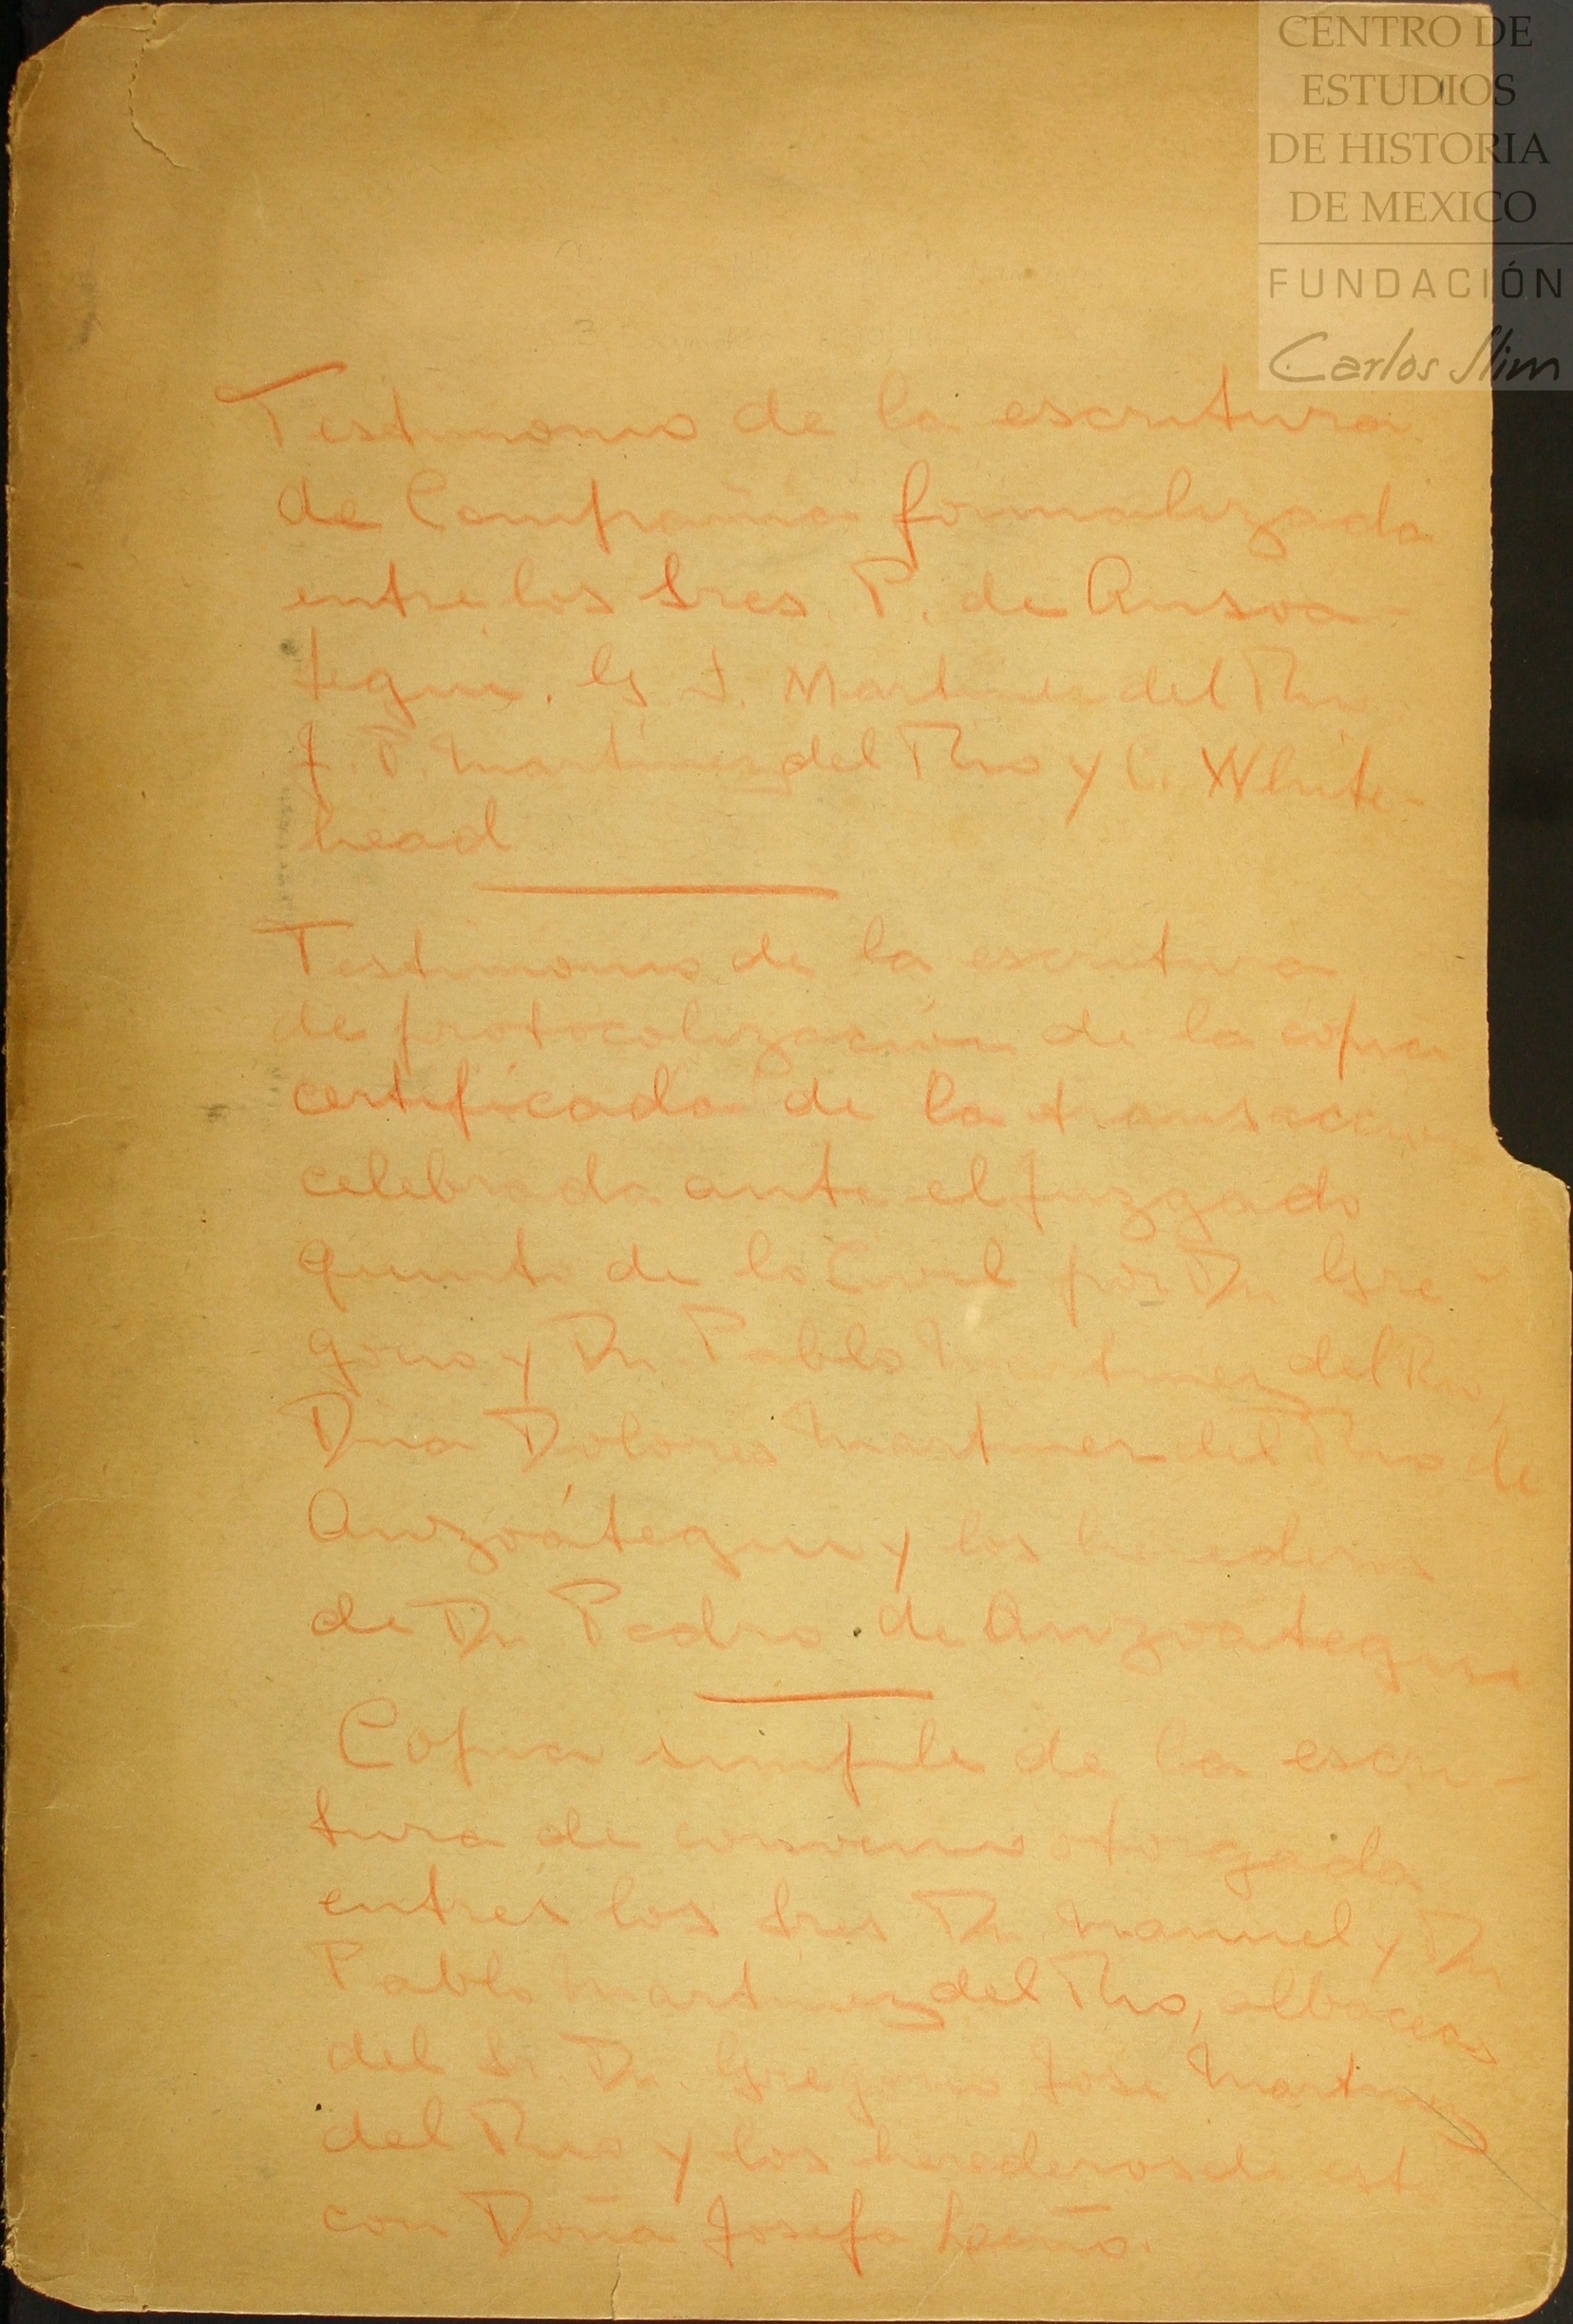 CENTRO DE
ESTUDIOS
DE HISTORIA
DE MEXICO
FUNDACIÓN
Carlos Slim
Testimonio de la escritura
de Compañia formalizada
entre los Sres. P. de Ansoa-
tegui. G J. Martinez del Rio
J. P. Martinez del Rio y C. White-
head
Testimonio de la escritura
de protocolización de la copia
certificada de la transaccion
celebrada ante el juzgado
quinto de lo Civil por Dn Gre-
gorio y Dn Pablo Martinez del Rio,
Dña Dolores Martinez del Rio de
Anzoátegui y los herederos
de Dn Pedro de Anzoategui
Copia simple de la escri-
tura de convenio otorgada
entres los Sres Dn Manuel y Dn
Pablo Martinez del Rio, albaceas
del Sr Dn Gregorio José Martinez
del Rio y los herederos de este
con Doña Josefa